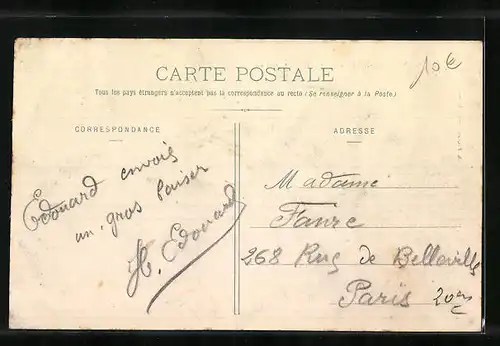 10€
CARTE POSTALE
Tous les pays étrangers n'acceptent pas la correspondance au recto (Se renseigner à la Poste)
CORRESPONDANCE
Edouard envois
un gros baiser
H. Edouard
ADRESSE
Madame
Faure
268 Rue de Belleville
Paris 20em